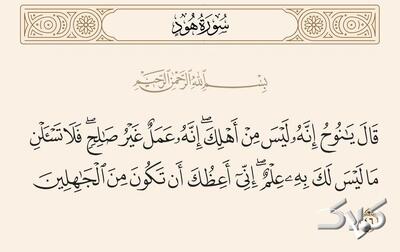 سُورَةُ هُودٍ
بِسْمِ اللَّهِ الرَّحْمَٰنِ الرَّحِيمِ
قَالَ يَٰنُوحُ إِنَّهُۥ لَيْسَ مِنْ أَهْلِكَۖ إِنَّهُۥ عَمَلٌ غَيْرُ صَٰلِحٖۖ فَلَا تَسْـَٔلْنِ
مَا لَيْسَ لَكَ بِهِۦ عِلْمٌۖ إِنِّيٓ أَعِظُكَ أَن تَكُونَ مِنَ ٱلْجَٰهِلِينَ